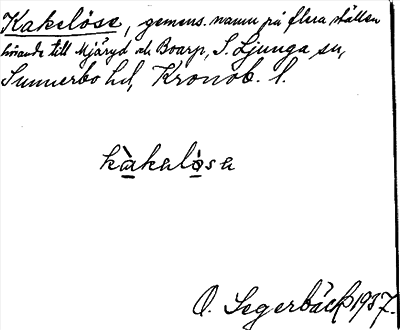 Kakelöse, gemens. namn på flera ställen
hörande till Mjäryd och Boarp, S. Ljunga sn,
Sunnerbo hd, Kronob. l.
kàkalò̱sa
O. Segerbäck 1937.